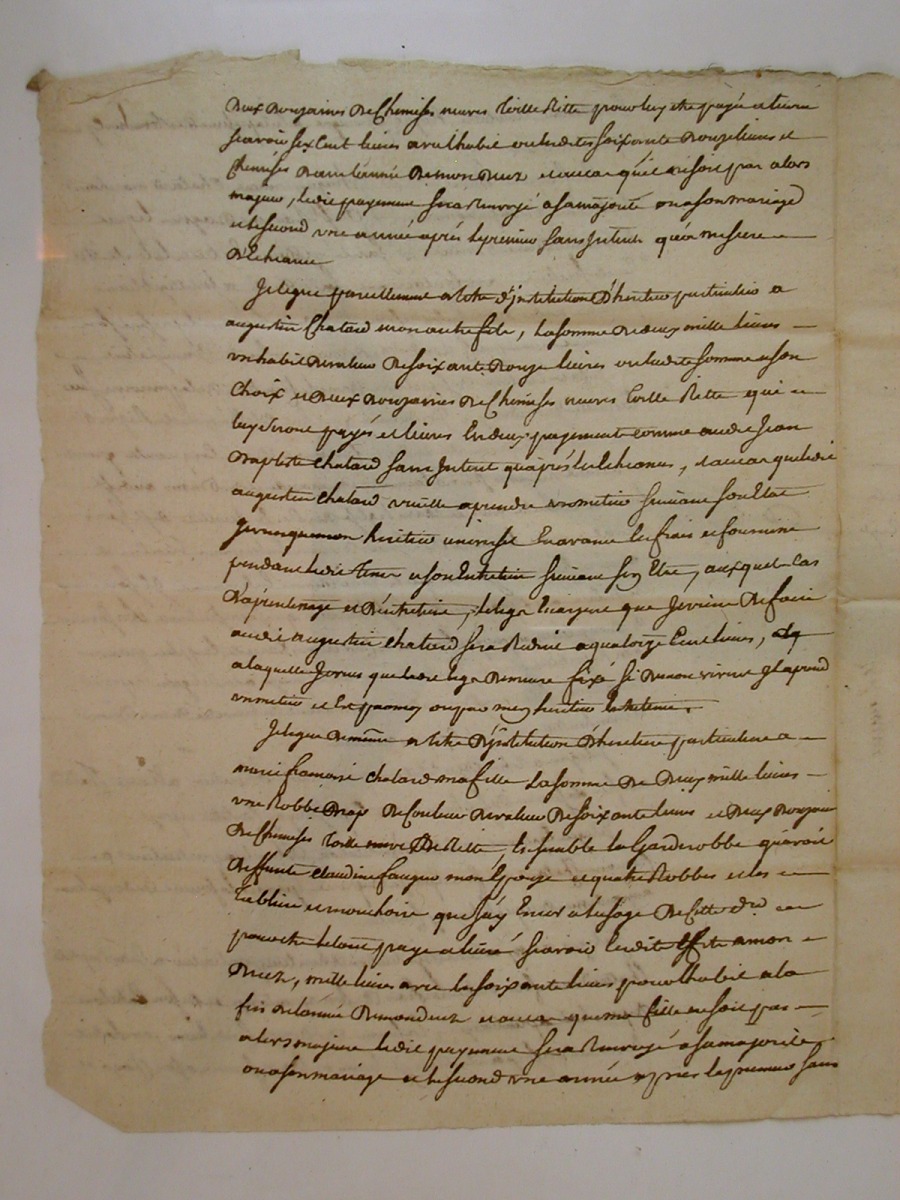 deux douzaines de chemises neuves toille Ritte pour luy etre payé et livré
scavoir six cent livres avec lhabit ou lesdites soixante douze livres et
chemises dans lannée de mon deces et au cas quil ne soit pas alors
majeur, ledit payement sera renvoyé a sa majorité ou a son mariage
et le second une année aprés le premier sans Interet qua mesure
d'Echeance
Je legue pareillement a titre d'institution d'heritier particulier a
augustin Chatard mon autre fils, la somme de deux mille livres
un habit de valeur de soixante douze livres ou ladite somme a son
choix et deux douzaines de chemises neuves toille Ritte qui
luy seront payés et livrés En deux payements comme audit Jean
Baptiste Chatard sans Interet qu'aprés les Echeances, et au cas que ledit
augustin chatard veuille aprendre un metier suivant son Etat
Je veux que mon heritier universel En avance les frais et fournisse
pendant ledit tems a son Entretien suivant son Etat, auxquel cas
d'aprentissage et d'entretien, le legs En argent que je viens de faire
audit augustin chatard sera Reduit a quatorze Cent livres,
a laquelle somme je veux que ledit legs demeure fixé si de mon vivant Il aprend
un metier et Est par moy ou par mon heritier Entretenu.
Je legue de même a titre d'Institution d'heritiere particuliere a
marie francoise chatard ma fille la somme de deux mille livres
une Robbe drap de couleur de valeur de soixante livres et deux douzaines
de chemises toille neuve de Ritte, Ensemble la Garderobbe qu'avoit
deffunte claudine faugier mon Epouze et quatre Robbes et les
Tabliers et mouchoirs que j'ay Encor a l'usage de cette dre
pour etre le tout payé et livré scavoir lesdits Effets a mon
deces, mille livres avec les soixante livres pour lhabit a la
fin de lannée de mon deces et au cas que ma fille ne soit pas
alors majeure ledit payement sera Renvoyé a sa majorité
ou a son mariage et le second une année aprés le premier sans